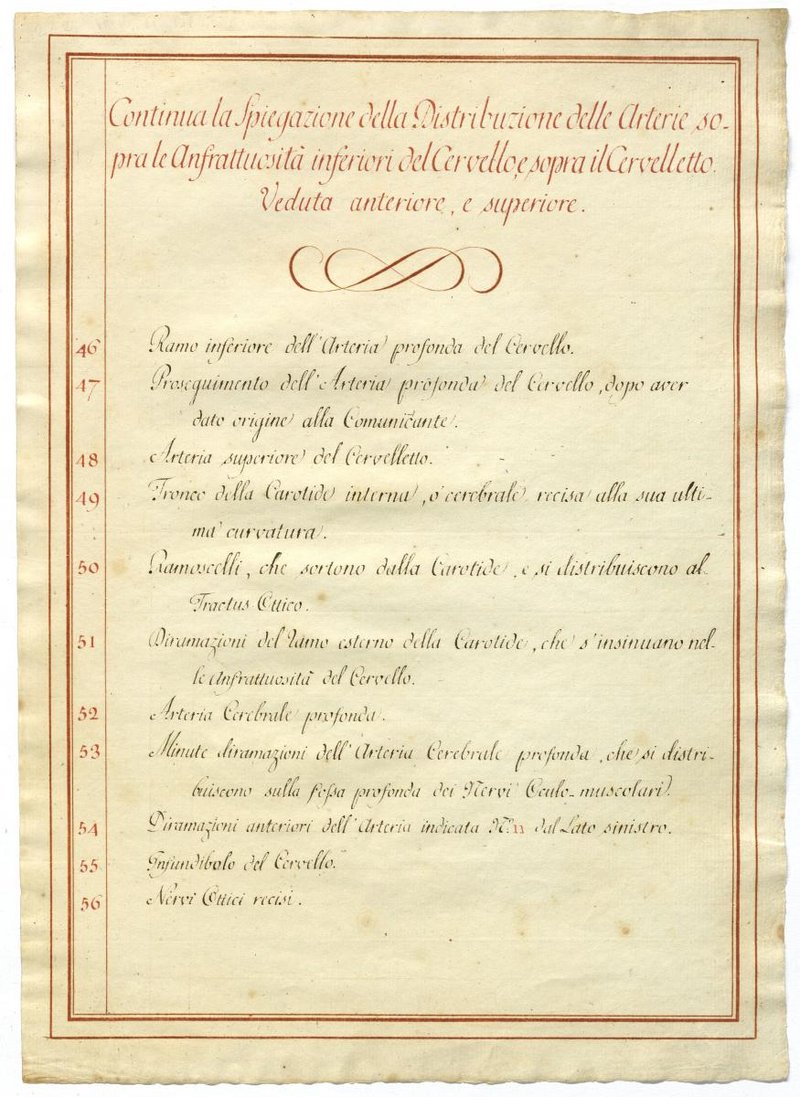 Continua la Spiegazione della Distribuzione delle Arterie so-
pra le Anfrattuosità inferiori del Cervello, e sopra il Cervelletto.
Veduta anteriore, e superiore.
46 Ramo inferiore dell'Arteria profonda del Cervello.
47 Proseguimento dell'Arteria profonda del Cervello, dopo aver
dato origine alla Comunicante.
48 Arteria superiore del Cervelletto.
49 Tronco della Carotide interna, o cerebrale recisa alla sua ulti-
ma curvatura.
50 Ramoscelli, che sortono dalla Carotide, e si distribuiscono al
Tractus Ottico.
51 Diramazioni del Ramo esterno della Carotide, che s'insinuano nel-
le Anfrattuosità del Cervello.
52 Arteria Cerebrale profonda.
53 Minute diramazioni dell'Arteria Cerebrale profonda, che si distri-
buiscono sulla fossa profonda dei Nervi Oculo-muscolari.
54 Diramazioni anteriori dell'Arteria indicata N.° 11 dal Lato sinistro.
55 Infundibolo del Cervello.
56 Nervi Ottici recisi.